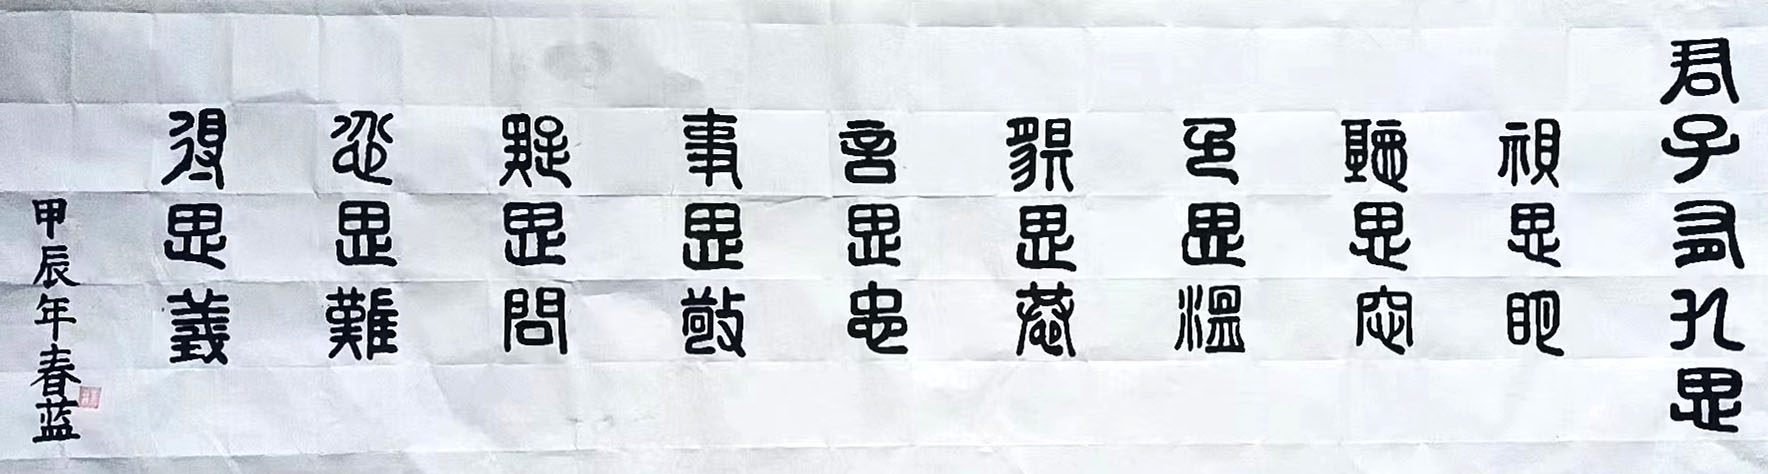 君子有九思
視思明
聽思窓
色思溫
貌思恭
言思忠
事思敬
疑思問
忿思難
得思義
甲辰年春蓝